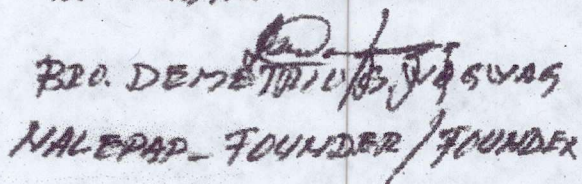 BRO. DEMETRIO B.
NALEPAP- FOUNDER / FOUNDER